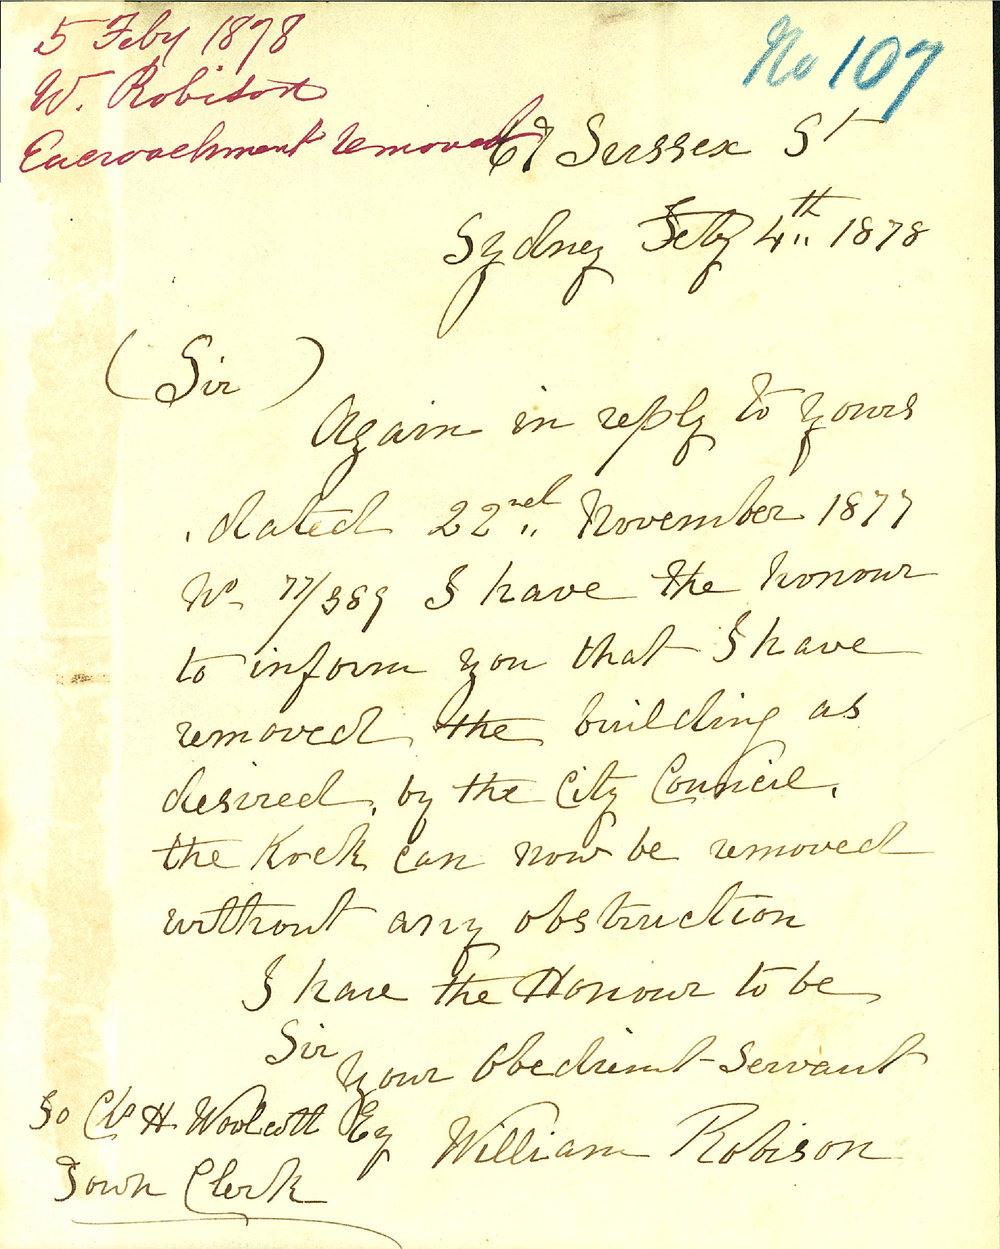 5 Feby 1878
W. Robison
Encroachment removed
No 107
67 Sussex St
Sydney Feby 4th 1878
(Sir)
Again in reply to yours
dated 22nd November 1877
No 77/389 I have the honour
to inform you that I have
removed the building as
desired, by the City Council,
the Rock can now be removed
without any obstruction
I have the Honour to be
Sir
Your Obedient Servant
William Robison
To Chs H Woolcott Esq
Town Clerk